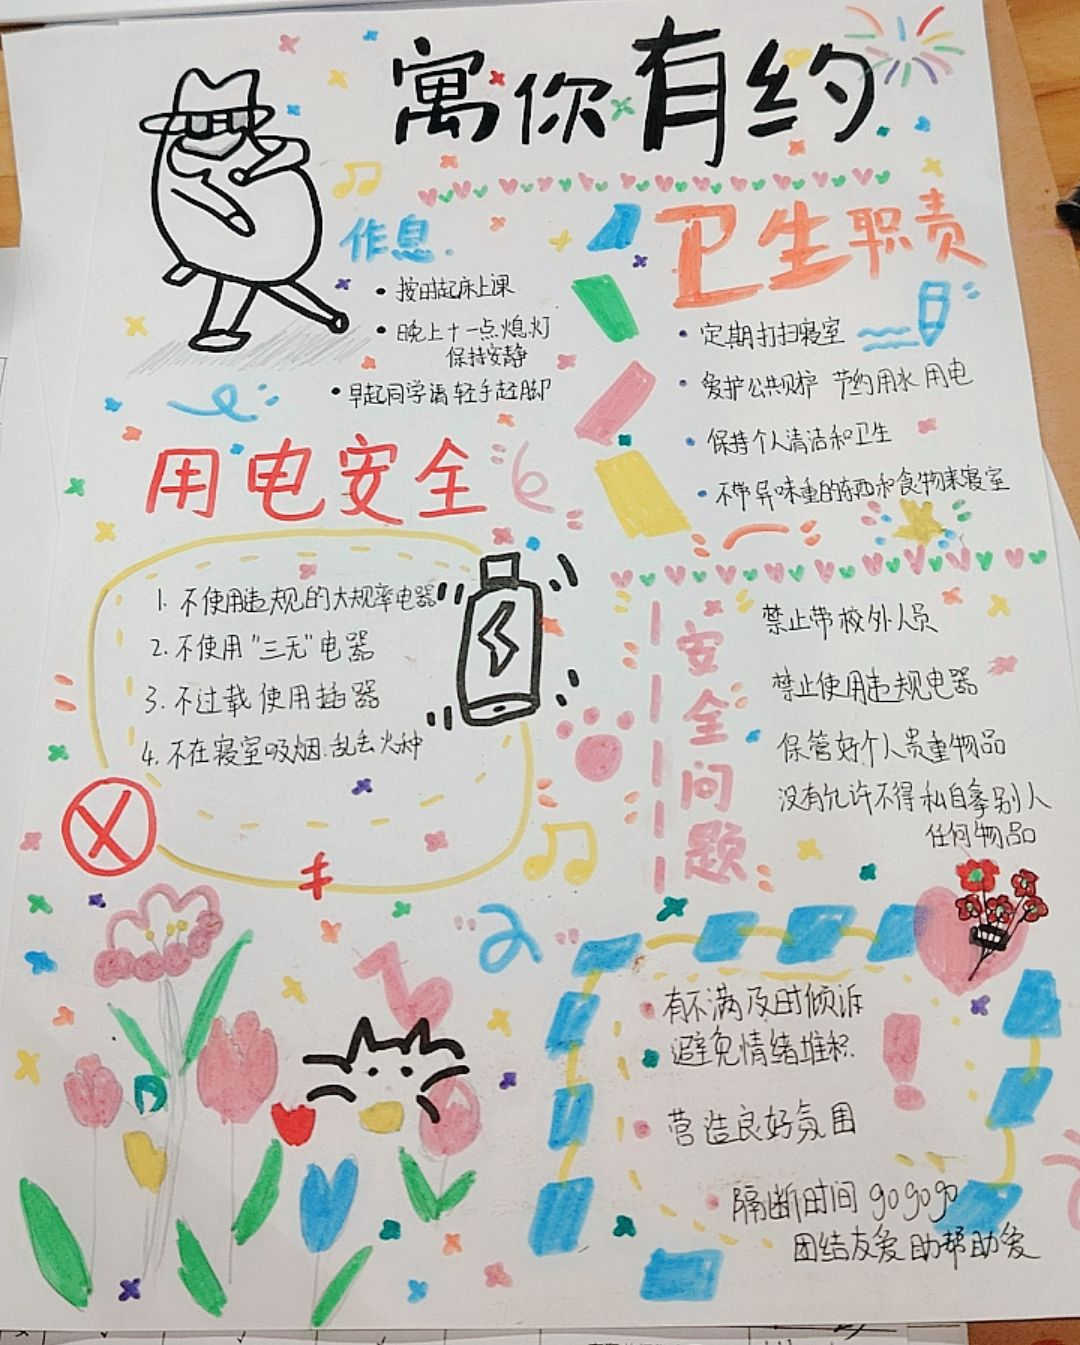 寓你有约
作息.
按时起床上课
晚上十一点熄灯
保持安静
早起同学请轻手轻脚
卫生职责
定期打扫寝室
爱护公共财护 节约用水 用电
保持个人清洁和卫生
不带异味重的东西和食物来寝室
用电安全
1. 不使用违规的大规率电器
2. 不使用"三无"电器
3. 不过载使用插器
4. 不在寝室吸烟.乱丢火种
安全问题
禁止带校外人员
禁止使用违规电器
保管好个人贵重物品
没有允许不得私自拿别人
任何物品
有不满及时倾诉
避免情绪堆积.
营造良好氛围
隔断时间 gogogo
团结友爱助帮助爱